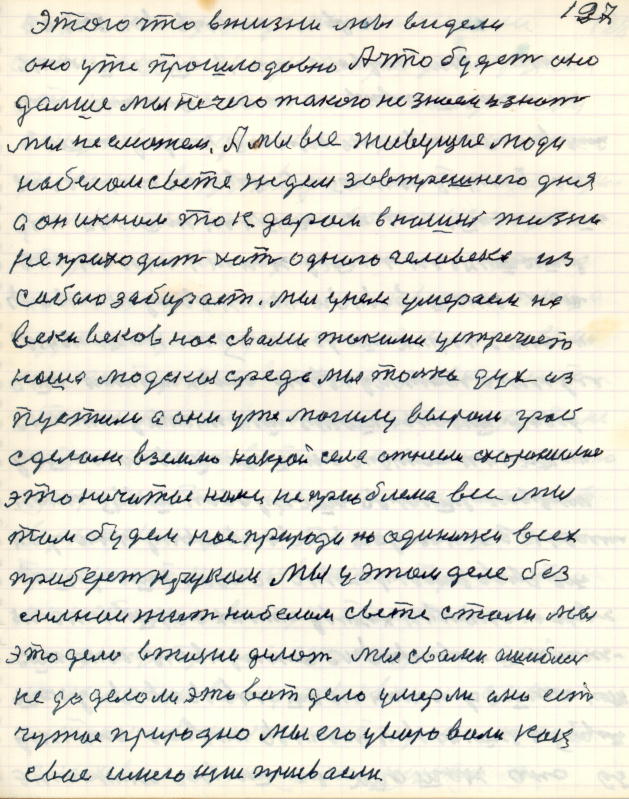 127
Этого что вжизни мы видели
оно уже прошло давно А что будет оно
далше мы нечего такого не знаем и знат
мы не сможем. А мы все живущие люди
на белом свете ждем завтрешнего дня
а он к нам так даром в нашей жизни
не приходит хот одного человека из
сабою забирает. мы у нем умераем на
веки веков нас свами такими устречает
наша людская среда мы толко дух из
пустили а они уже могилу вырыли гроб
сделали вземлю на край села отнесли схоронили
это начитые нами не приоблема все мы
там будем нас природа по одиночки всех
приберет к рукам мы у этом деле без
силнои жит на белом свете стали мы
это дело вжизни делат мы свами ошиблис
не доделали это вот дело умерли оно ест
чужое природно мы его уворовали как
свое